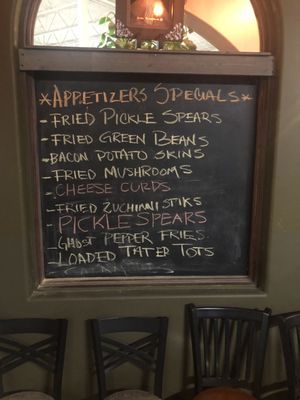 *APPETIZERS SPECIALS*
-FRIED PICKLE SPEARS
-FRIED GREEN BEANS
-BACON POTATO SKINS
-FRIED MUSHROOMS
-CHEESE CURDS
-FRIED ZUCHINNISTIKS
-PICKLE SPEARS
-GHOST PEPPER FRIES
-LOADED TATER TOTS